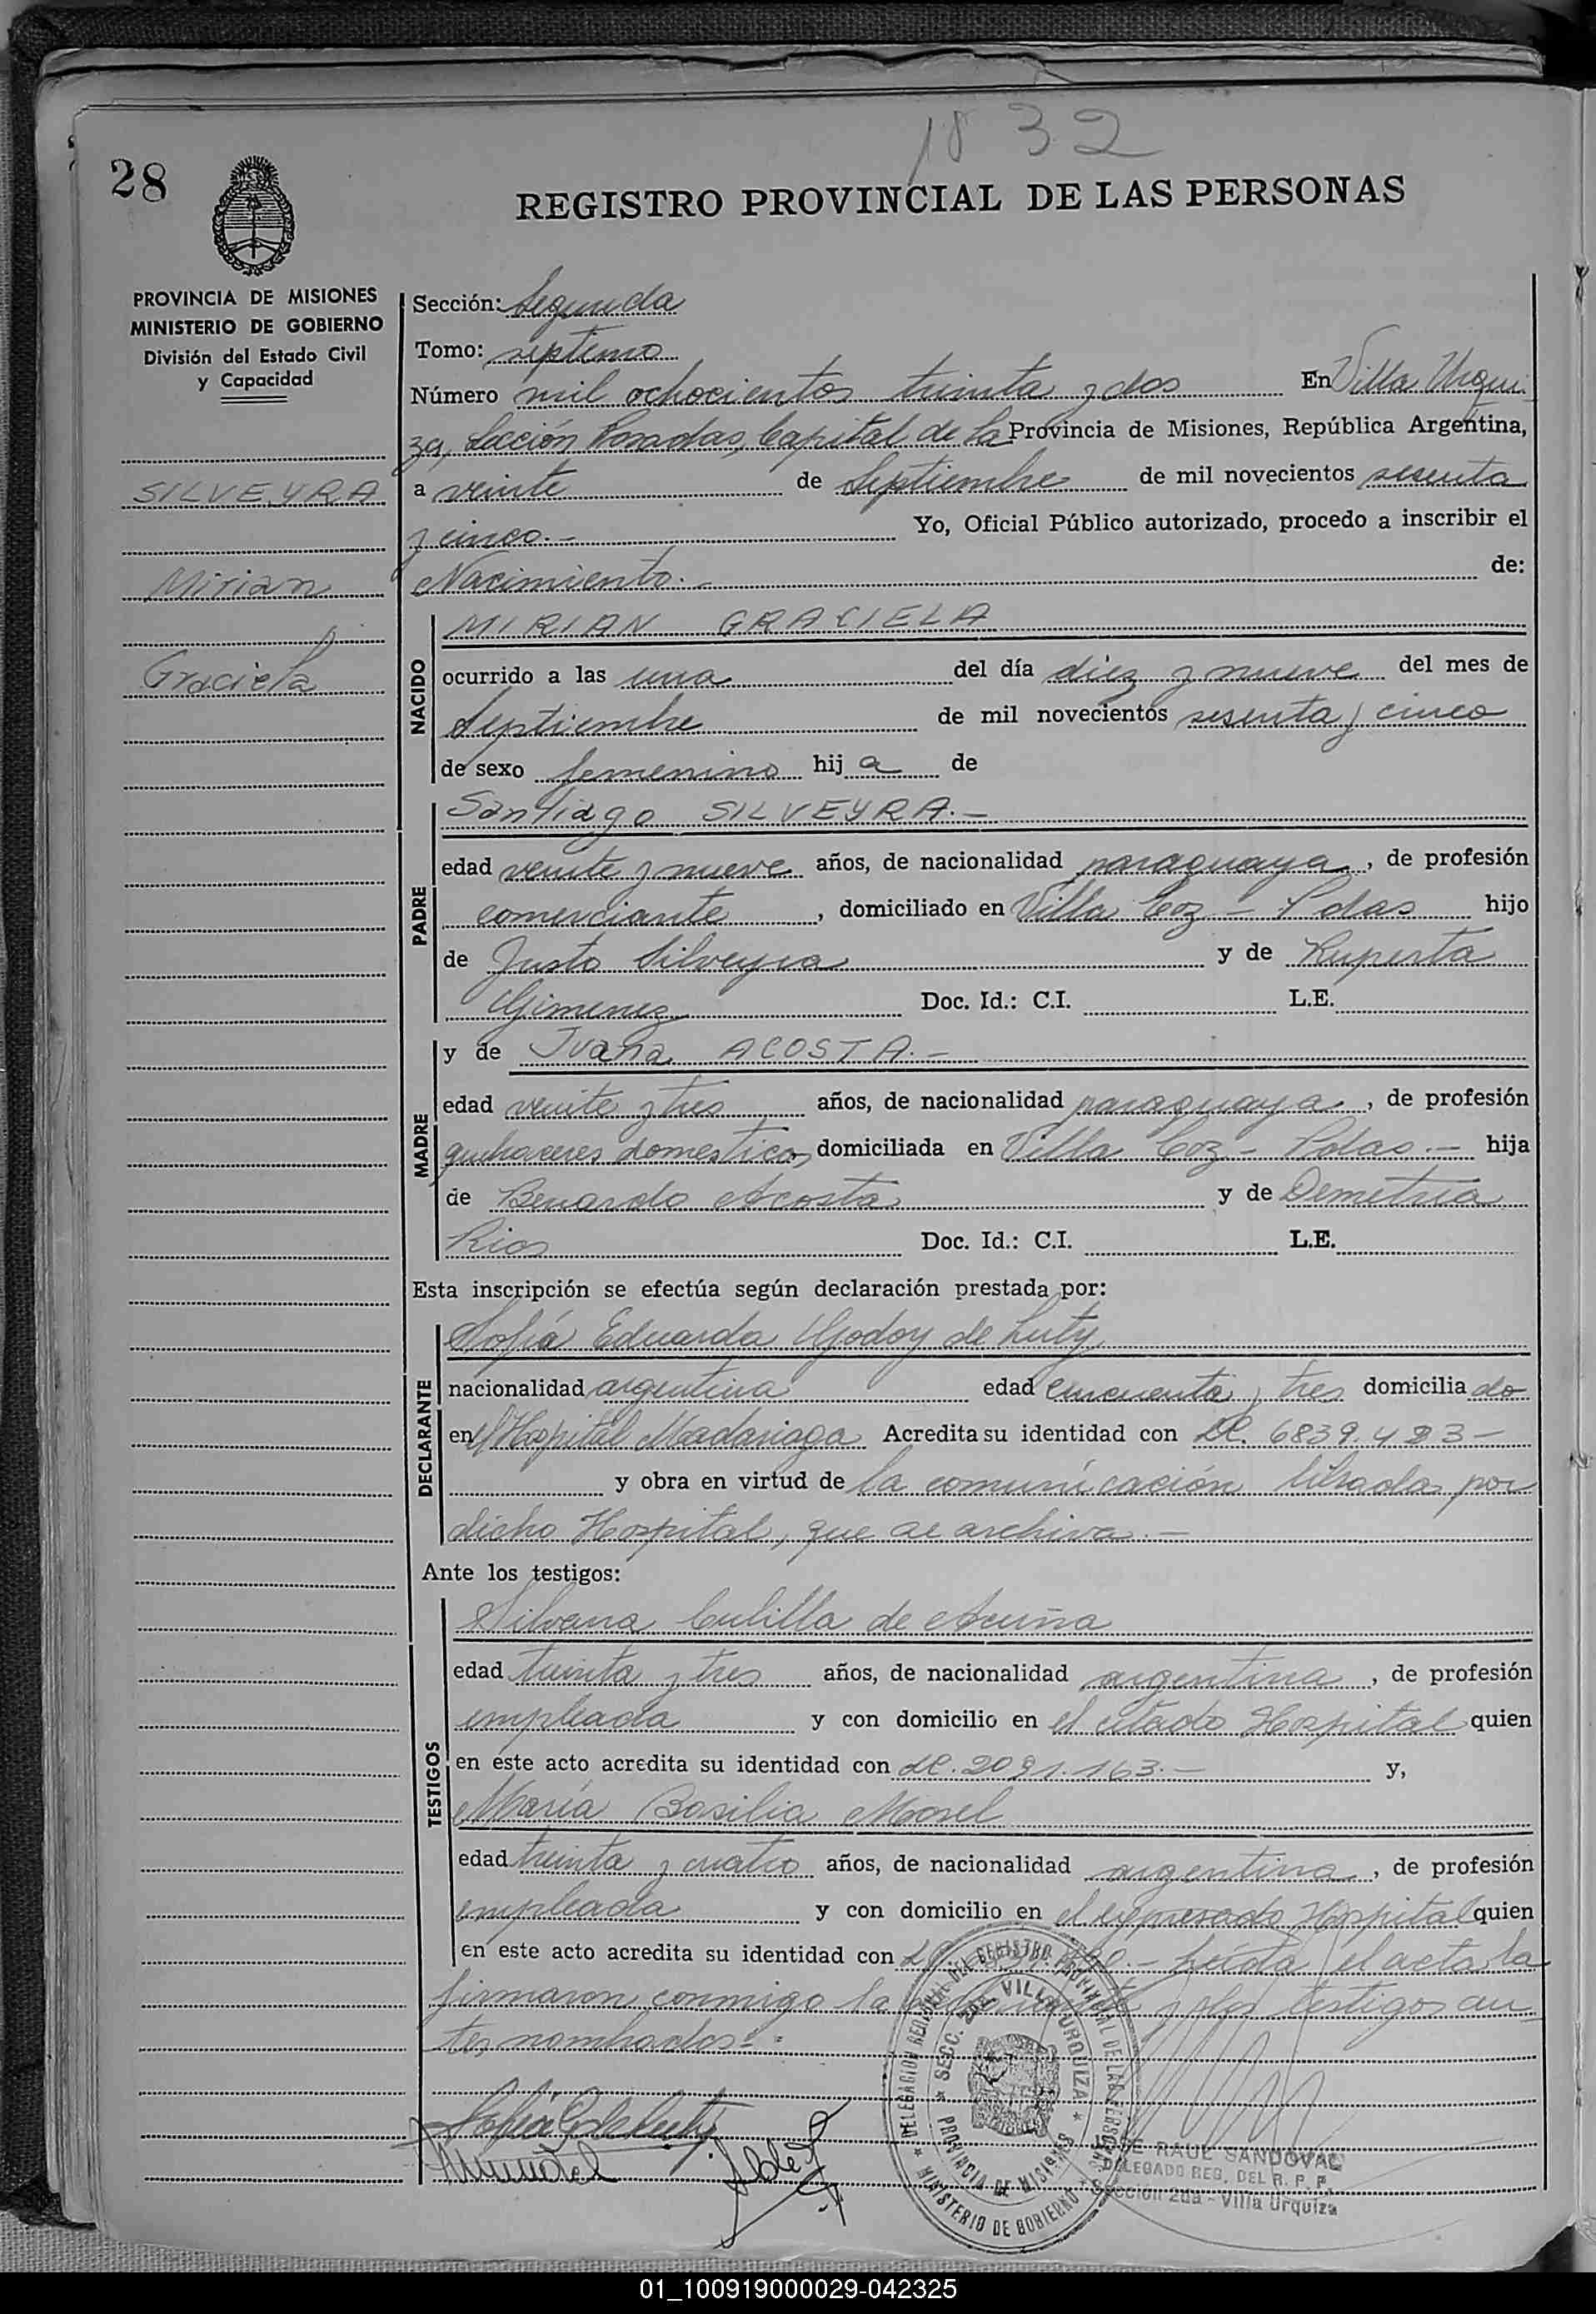 1832
28
REGISTRO PROVINCIAL DE LAS PERSONAS
PROVINCIA DE MISIONES
MINISTERIO DE GOBIERNO
División del Estado Civil
y Capacidad
SILVEYRA
Mirian
Graciela
Sección: Segunda
Tomo: septimo
Número mil ochocientos treinta y dos En Villa Urqui
za, Sección Posadas, Capital de la Provincia de Misiones, República Argentina,
a veinte de Septiembre de mil novecientos sesenta
y cinco.- Yo, Oficial Público autorizado, procedo a inscribir el
Nacimiento.- de:
NACIDO
MIRIAN GRACIELA
ocurrido a las una del día diez y nueve del mes de
Septiembre de mil novecientos sesenta y cinco
de sexo femenino hija de
PADRE
Santiago SILVEYRA.-
edad veinte y nueve años, de nacionalidad paraguaya, de profesión
comerciante, domiciliado en Villa Coz - Pdas hijo
de Justo Silveyra y de Ruperta
Gimenez Doc. Id.: C.I. L.E.
MADRE
y de Juana ACOSTA.-
edad veinte y tres años, de nacionalidad paraguaya, de profesión
quehaceres domesticos domiciliada en Villa Coz - Pdas.- hija
de Benardo Acosta y de Demetria
Rios Doc. Id.: C.I. L.E.
Esta inscripción se efectúa según declaración prestada por:
DECLARANTE
Sofía Eduarda Godoy de Luty
nacionalidad argentina edad cincuenta y tres domiciliado
en Hospital Madariaga Acredita su identidad con LC. 6839.483-
y obra en virtud de la comunicación librada por
dicho Hospital, que se archiva.-
Ante los testigos:
TESTIGOS
Silvana Cubilla de Acuña
edad treinta y tres años, de nacionalidad argentina, de profesión
empleada y con domicilio en el citado Hospital quien
en este acto acredita su identidad con LC. 2091.163.- y,
María Basilia Morel
edad treinta y cuatro años, de nacionalidad argentina, de profesión
empleada y con domicilio en el expresado Hospital quien
en este acto acredita su identidad con Leída el acta la
firmaron conmigo la y los testigos an
tes nombrados.-
DELEGACION REGIONAL DEL REGISTRO PROVINCIAL DE LAS PERSONAS
SECC. 2da. VILLA URQUIZA
PROVINCIA DE MISIONES
MINISTERIO DE GOBIERNO
JOSE RAUL SANDOVAL
DELEGADO REG. DEL R. P. P.
Sección 2da - Villa Urquiza
01_100919000029-042325